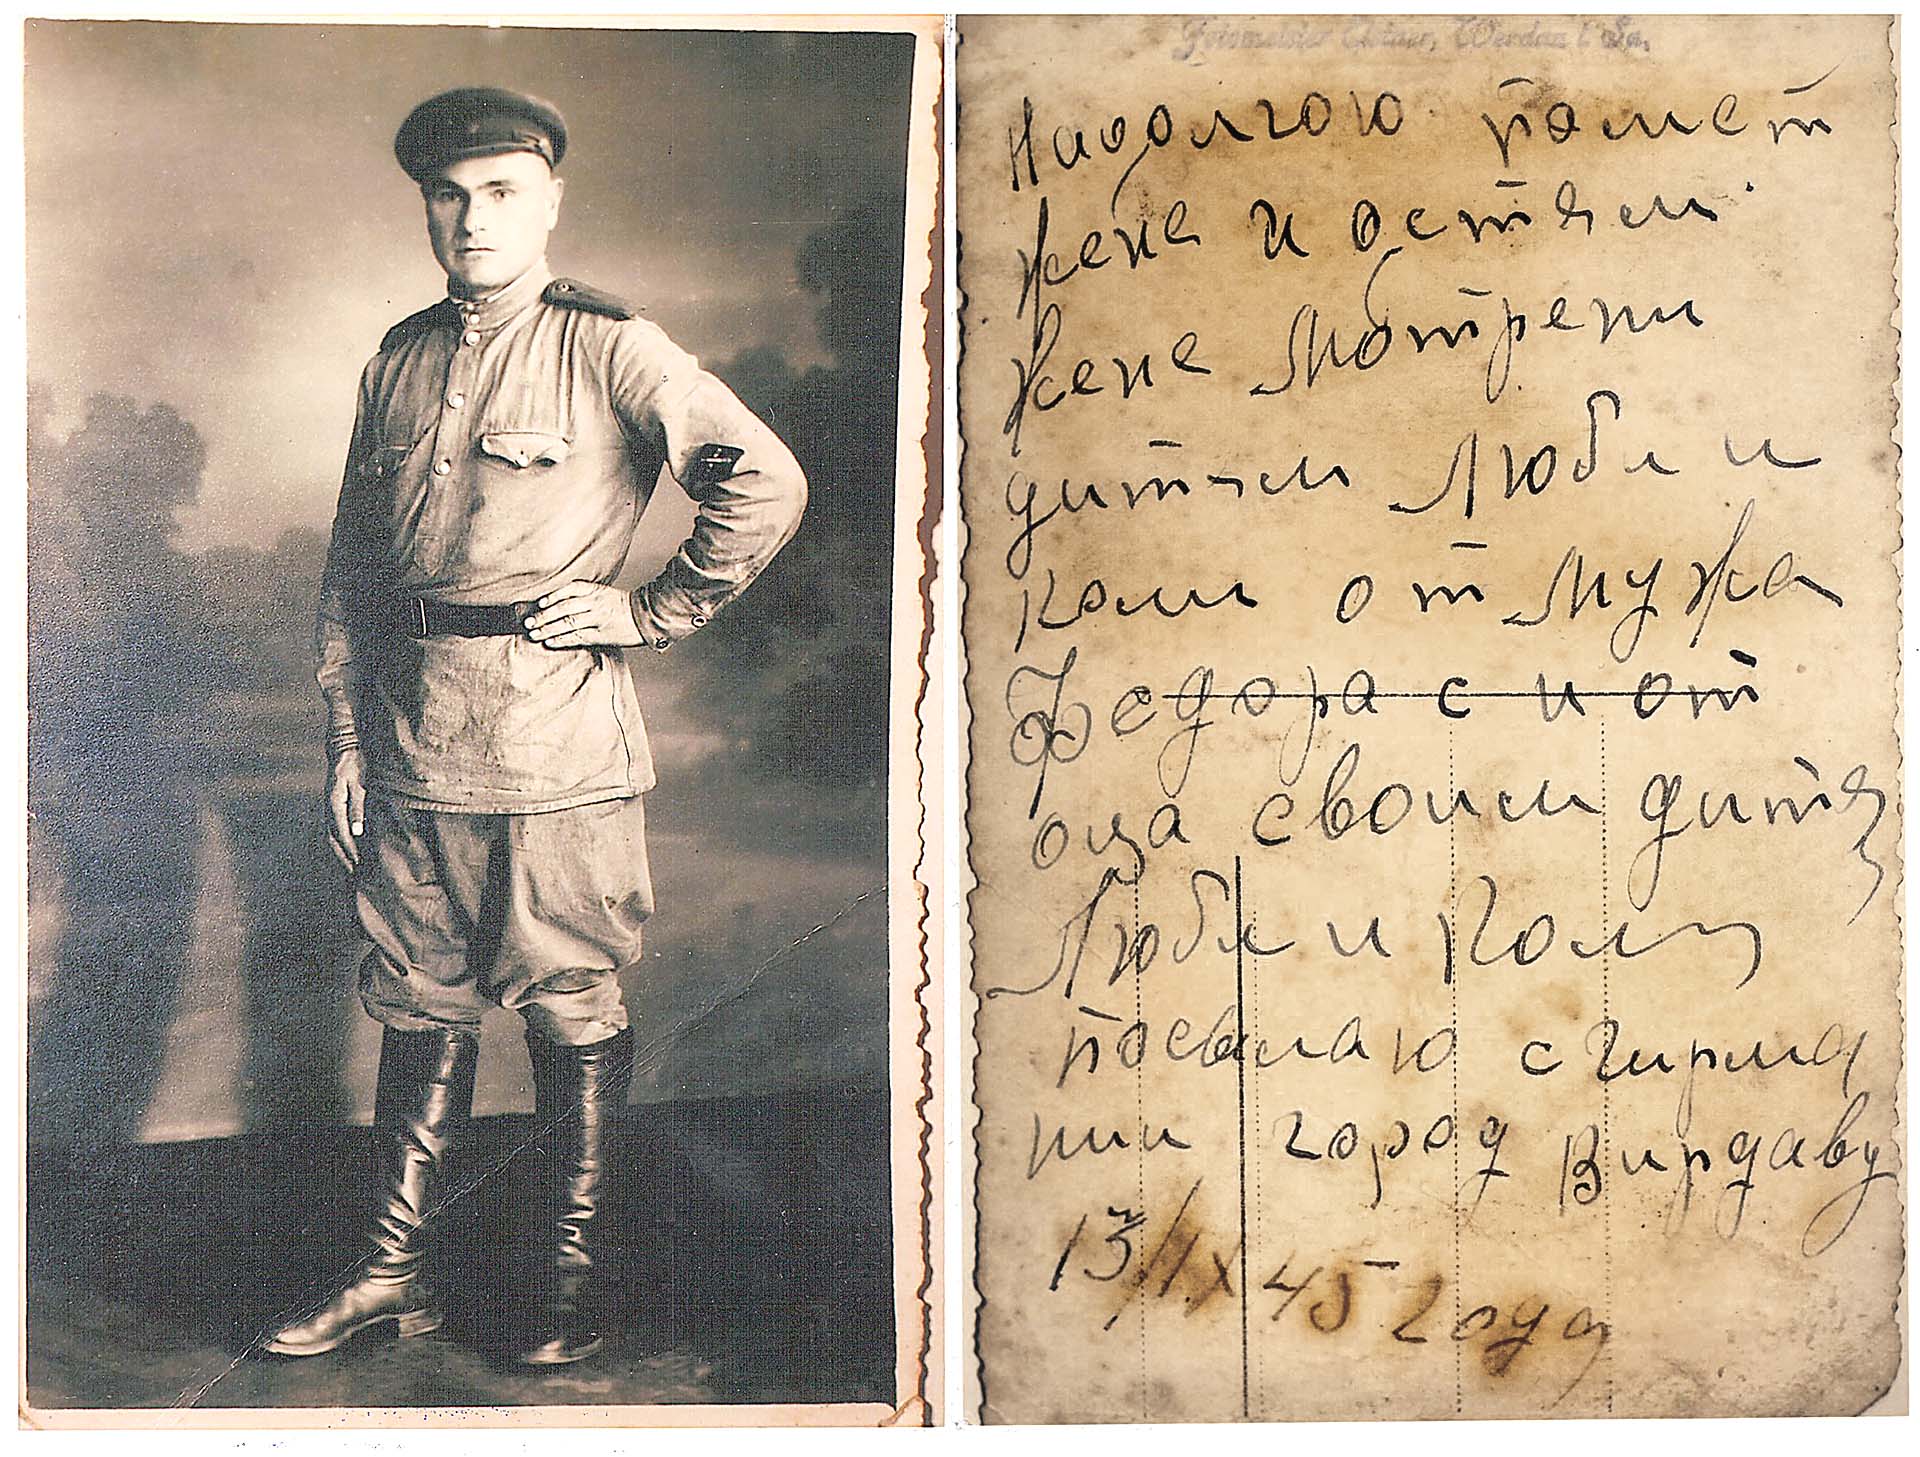 Fotomeister, Werdau i. Sa.
Надолгою памет
жене и детям
жене Мотрени
дитям Любли и
коли от мужа
Федора с и от
оца своим дитя
Любли и Коли
посылаю с гирма
нии город Вирдаву
13/IX 45 года